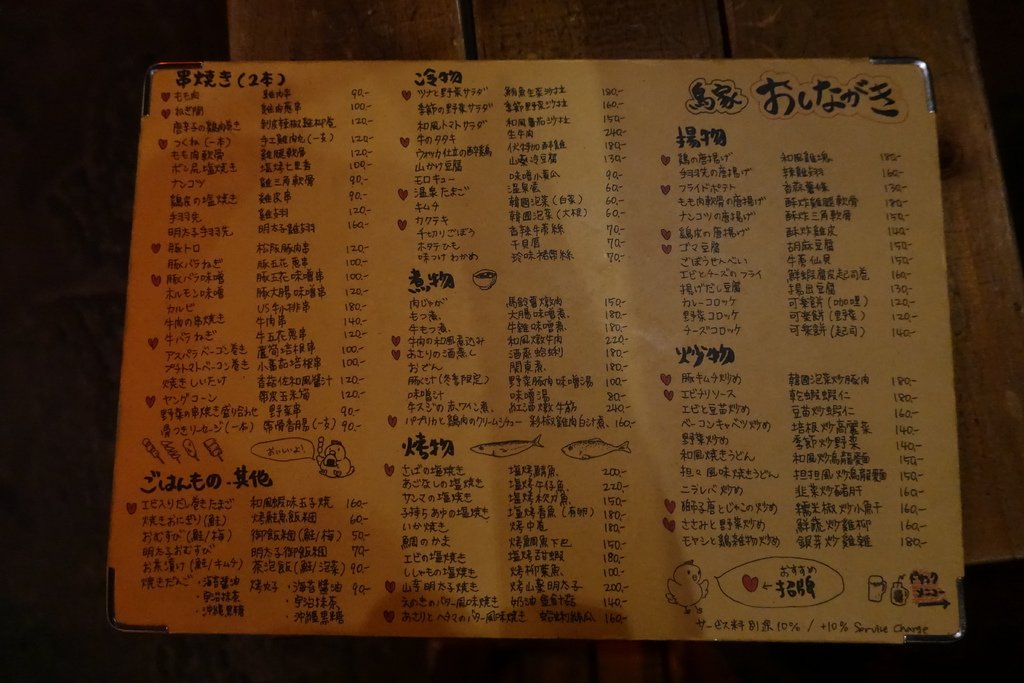 串焼き(2本)
もも肉 雞肉串 90.-
ねぎ間 雞肉蔥串 100.-
唐辛子の鶏肉巻き 剝皮辣椒雞柳卷 120.-
つくね(一本) 手工雞肉丸(一支) 120.-
もも肉軟骨 雞腿軟骨 120.-
ボン尻塩焼き 塩烤七里香 100.-
ナンコツ 雞三角軟骨 90.-
鶏皮の塩焼き 雞皮串 90.-
手羽先 雞翅 120.-
明太子手羽先 明太子雞翅 160.-
豚トロ 松阪豚肉串 120.-
豚バラねぎ 豚五花蔥串 100.-
豚バラ味噌 豚五花味噌串 100.-
ホルモン味噌 豚大腸味噌串 120.-
カルビ US牛小排串 180.-
牛肉の串焼き 牛肉串 140.-
牛バラねぎ 牛五花蔥串 120.-
アスパラベーコン巻き 蘆筍培根串 100.-
プチトマトベーコン巻き 小番茄培根串 100.-
焼きしいたけ 香菇佐和風醬汁 120.-
ヤングコーン 帶皮玉米筍 120.-
野菜の串焼き盛り合わせ 野菜串 90.-
骨つきソーセージ(一本) 帶骨香腸(一支) 90.-
おいしいよ!
ごはんもの・其他
エビ入りだし巻きたまご 和風蝦味玉子燒 160.-
焼きおにぎり(鮭) 烤鮭魚飯糰 60.-
おむすび(鮭/梅) 御飯糰(鮭/梅) 50.-
明太子おむすび 明太子御飯糰 70.-
お茶漬け(鮭/キムチ) 茶泡飯(鮭/泡菜) 90.-
焼きだんご・海苔醤油 烤丸子・海苔醬油 90.-
・宇治抹茶 ・宇治抹茶
・沖縄黒糖 ・沖繩黑糖
冷物
ツナと野菜サラダ 鮪魚生菜沙拉 180.-
季節の野菜サラダ 季節野菜沙拉 160.-
和風トマトサラダ 和風番茄沙拉 150.-
牛のタタキ 生牛肉 240.-
ウォッカ仕立の酔鶏 伏特加醉雞 180.-
山かけ豆腐 山藥冷豆腐 130.-
モロキュー 味噌小黃瓜 90.-
温泉たまご 溫泉蛋 60.-
キムチ 韓國泡菜(白菜) 60.-
カクテキ 韓國泡菜(大根) 60.-
千切りごぼう 香辣牛蒡絲 70.-
ホタテひも 干貝唇 70.-
味つけわかめ 珍味裙帶絲 70.-
煮物
肉じゃが 馬鈴薯燉肉 150.-
もつ煮 大腸味噌煮 180.-
牛もつ煮 牛雜味噌煮 180.-
牛肉の和風煮込み 和風燉牛肉 220.-
あさりの酒蒸し 酒蒸蛤蜊 180.-
おでん 関東煮 180.-
豚汁(冬季限定) 野菜豚肉味噌湯 100.-
味噌汁 味噌湯 80.-
牛スジの赤ワイン煮 紅酒燉牛筋 240.-
パプリカと鶏肉のクリームシチュー 彩椒雞肉白汁煮 160.-
烤物
さばの塩焼き 塩烤鯖魚 200.-
あごなしの塩焼き 塩烤午仔魚 220.-
サンマの塩焼き 塩烤秋刀魚 150.-
子持ちあゆの塩焼き 塩烤香魚(有卵) 180.-
いか焼き 烤中卷 180.-
鯛のかま 烤鯛魚下巴 150.-
エビの塩焼き 塩烤甜蝦 180.-
ししゃもの塩焼き 烤柳葉魚 100.-
山芋明太子焼き 烤山藥明太子 200.-
えのきのバター風味焼き 奶油金針菇 140.-
あさりとヘチマのバター風味焼き 蛤蜊絲瓜 160.-
鳥家 おしながき
揚物
鶏の唐揚げ 和風雞塊 180.-
手羽先の唐揚げ 辣雞翅 160.-
フライドポテト 香蒜薯條 130.-
もも肉軟骨の唐揚げ 酥炸雞腿軟骨 180.-
ナンコツの唐揚げ 酥炸三角軟骨 150.-
鶏皮の唐揚げ 酥炸雞皮 140.-
ゴマ豆腐 胡麻豆腐 150.-
ごぼうせんべい 牛蒡仙貝 150.-
エビとチーズのフライ 鮮蝦腐皮起司卷 160.-
揚げだし豆腐 揚出豆腐 130.-
カレーコロッケ 可樂餅(咖哩) 120.-
野菜コロッケ 可樂餅(野菜) 120.-
チーズコロッケ 可樂餅(起司) 140.-
炒物
豚キムチ炒め 韓國泡菜炒豚肉 180.-
エビチリソース 乾燒蝦仁 180.-
エビと豆苗炒め 豆苗炒蝦仁 160.-
ベーコンキャベツ炒め 培根炒高麗菜 140.-
野菜炒め 季節炒野菜 140.-
和風焼きうどん 和風炒烏龍麵 150.-
担々風味焼きうどん 担担風炒烏龍麵 150.-
ニラレバ炒め 韭菜炒豬肝 160.-
獅子唐とじゃこの炒め 糯米椒炒小魚干 160.-
ささみと野菜炒め 鮮蔬炒雞柳 160.-
モヤシと鶏雑物炒め 銀芽炒雞雜 180.-
おすすめ
←招牌
ドリンク
メニュー
サービス料別途10% / +10% Service Charge